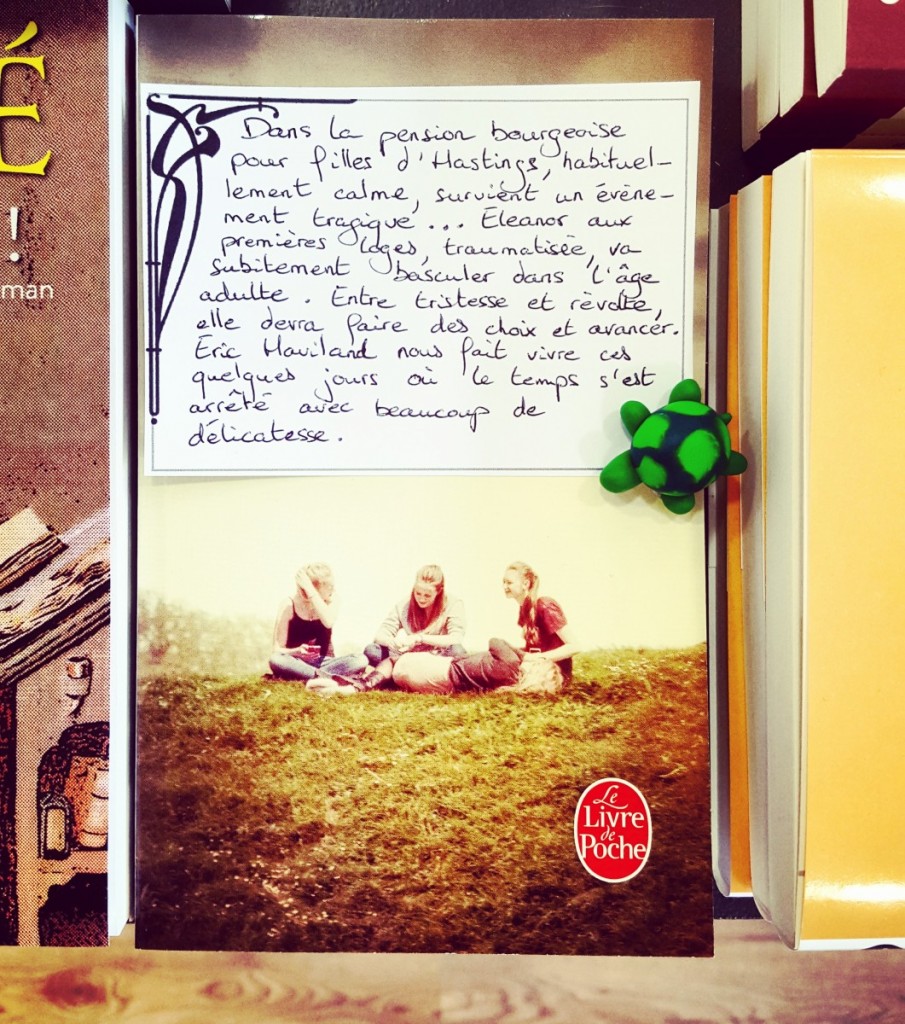 É
!
man
Dans la pension bourgeoise
pour filles d'Hastings, habituel-
lement calme, survient un évène-
ment tragique... Eleanor aux
premières loges, traumatisée, va
subitement basculer dans l'âge
adulte. Entre tristesse et révolte,
elle devra faire des choix et avancer.
Éric Haviland nous fait vivre ces
quelques jours où le temps s'est
arrêté avec beaucoup de
délicatesse.
Le
Livre
de
Poche